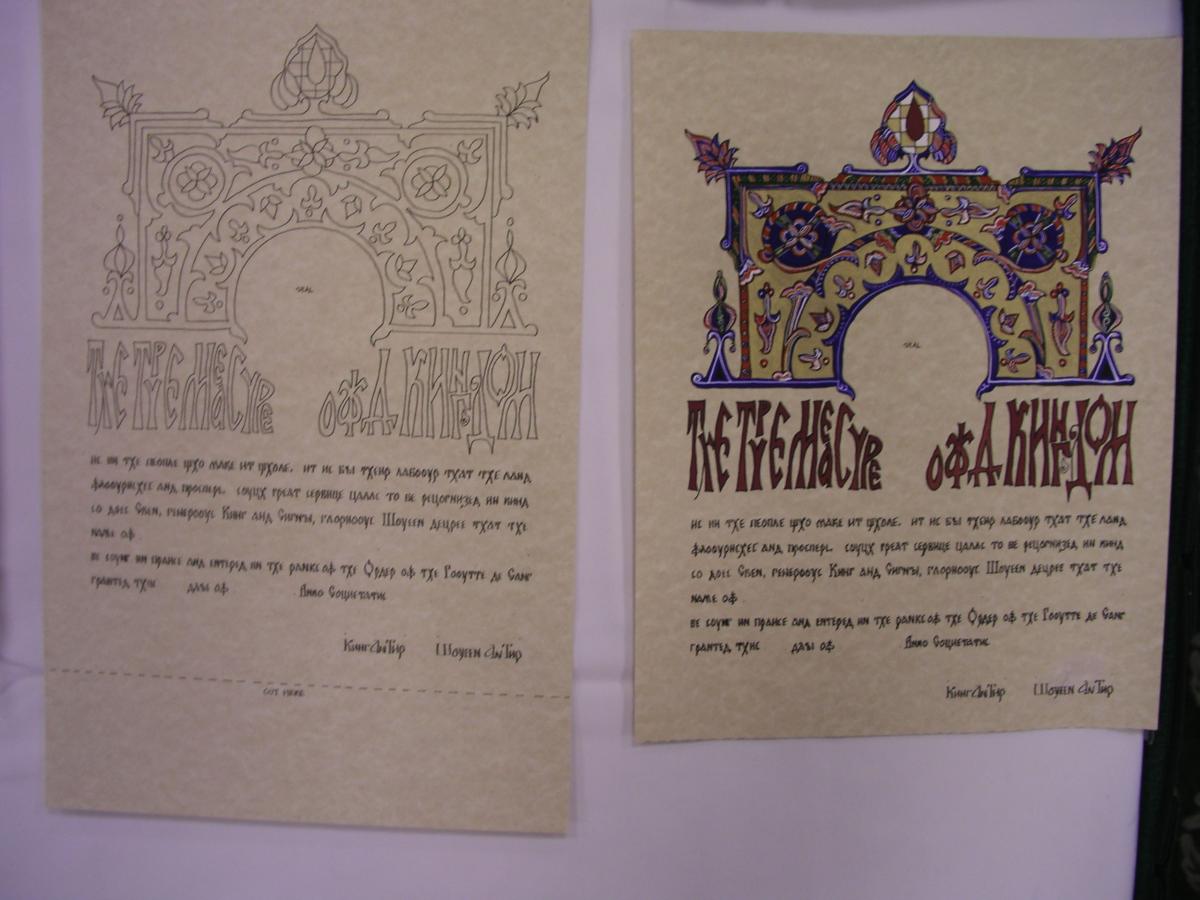 SEAL
ТХЕ ТРУЕ МЕАСУРЕ ОФ А КИНГДОМ
ис ин тхе пеопле шхо маке ит шхоле. ит ис бы тхеир лабооур тхат тхе ланд
флооурисхес анд проспер. соуцх греат сервице цаллс то бе рецогнизед ин кинд
со доес Свен, генерооус Кинг анд Сигны, глориооус Шоуеен децрее тхат тхе
наме оф
бе соунг ин праисе анд ентеред ин тхе ранкс оф тхе Ордер оф тхе Гооутте де Санг
грантед тхис даы оф Анно Социетатис
Кинг АнТир Шоуеен АнТир
CUT HERE
SEAL
ТХЕ ТРУЕ МЕАСУРЕ ОФ А КИНГДОМ
ис ин тхе пеопле шхо маке ит шхоле. ит ис бы тхеир лабооур тхат тхе ланд
флооурисхес анд проспер. соуцх греат сервице цаллс то бе рецогнизед ин кинд
со доес Свен, генерооус Кинг анд Сигны, глориооус Шоуеен децрее тхат тхе
наме оф
бе соунг ин праисе анд ентеред ин тхе ранкс оф тхе Ордер оф тхе Гооутте де Санг
грантед тхис даы оф Анно Социетатис
Кинг АнТир Шоуеен АнТир